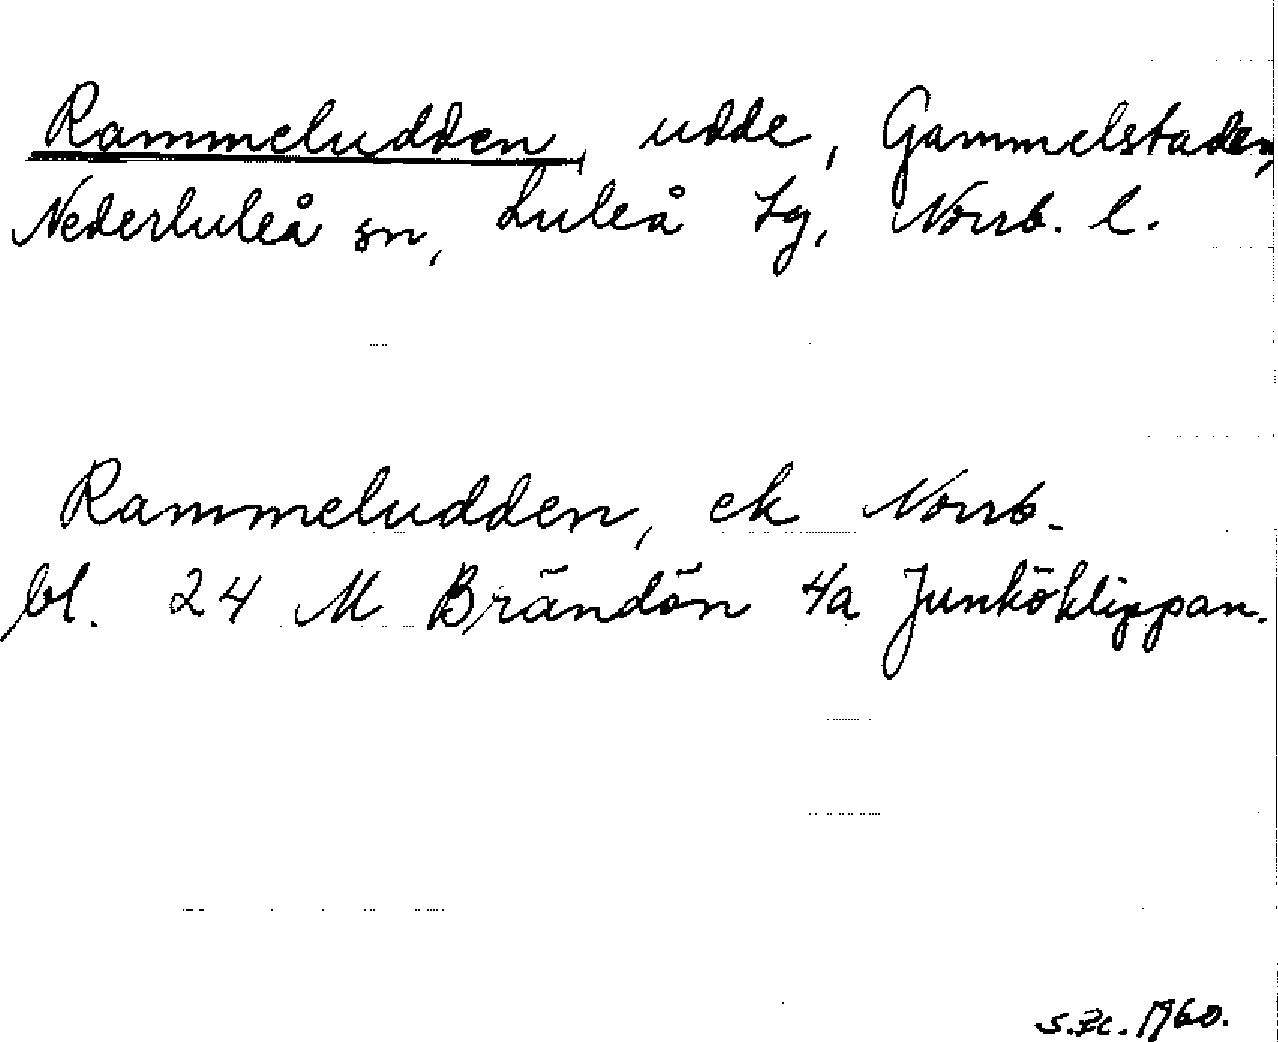 Rammeludden, udde, Gammelstaden,
Nederluleå sn, Luleå tg, Norrb. l.
Rammeludden, ek Norrb.
bl. 24 M Brändön 4a Junköklippan.
1960.